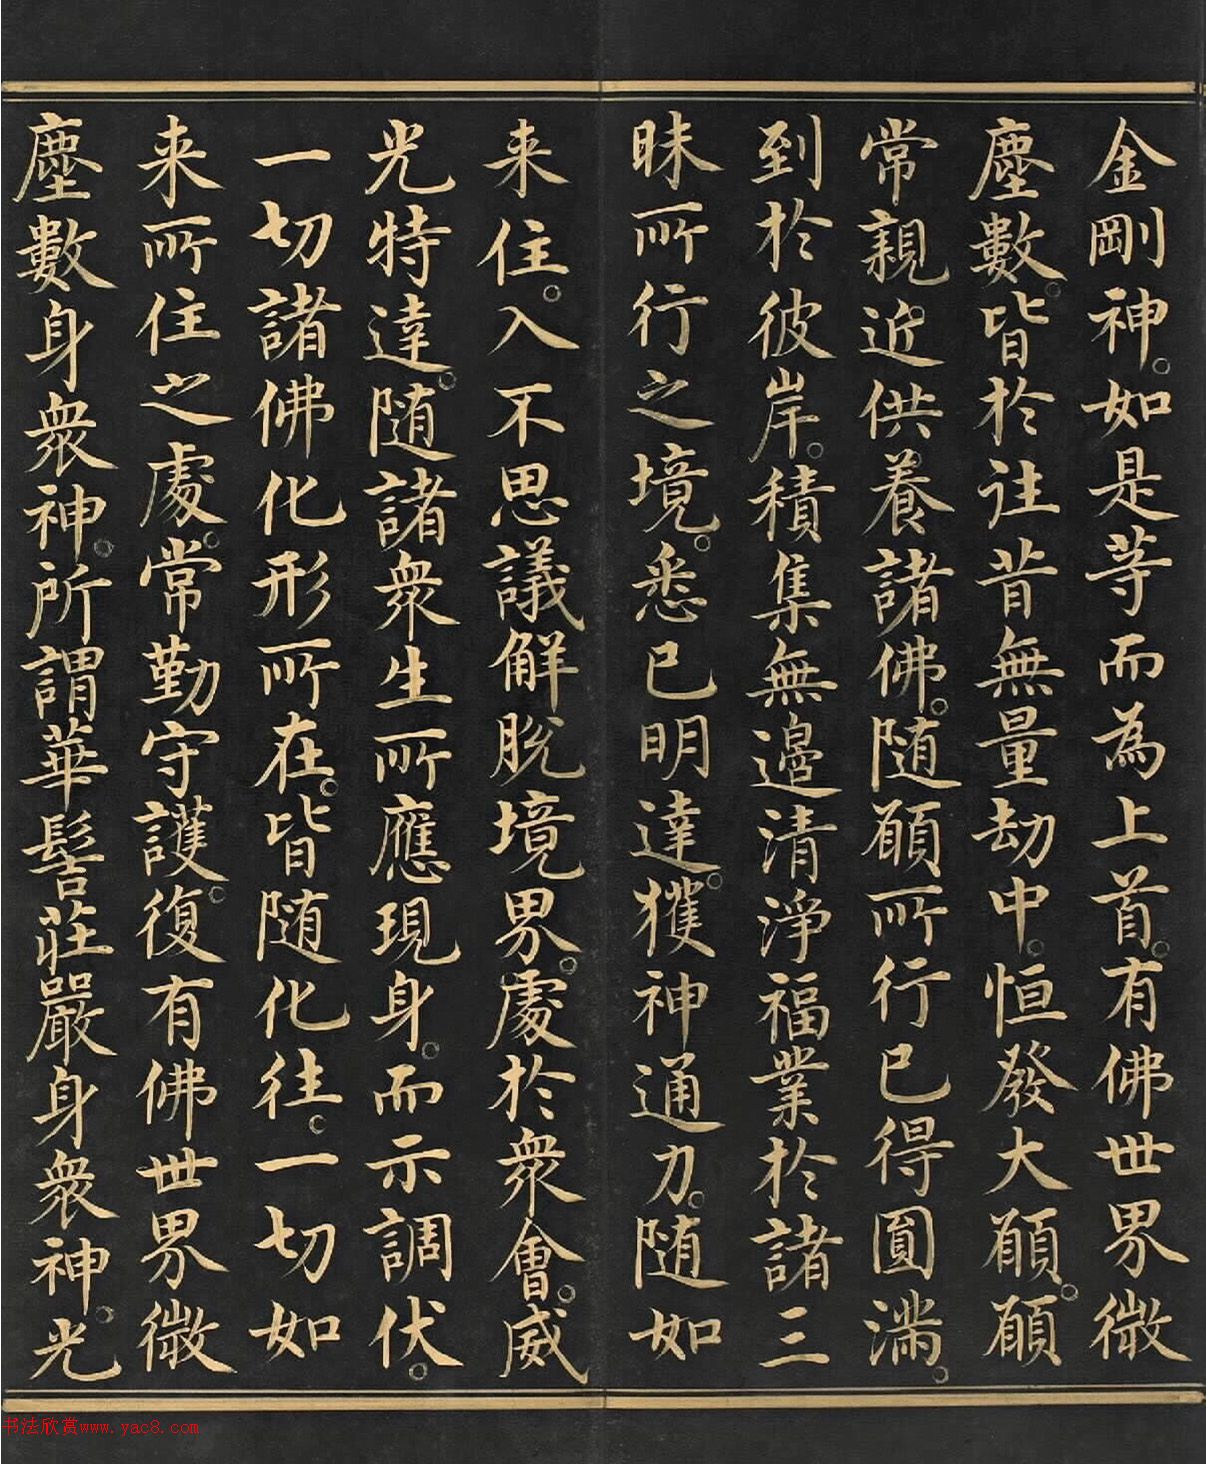 金剛神。如是等而為上首。有佛世界微
塵數。皆於往昔無量劫中。恒發大願。願
常親近供養諸佛。随願所行已得圓滿。
到於彼岸。積集無邊清淨福業於諸三
昧所行之境。悉已明達。獲神通力。随如
来住。入不思議解脫境界。處於衆會。威
光特達。随諸衆生所應現身。而示調伏。
一切諸佛化形所在。皆随化往。一切如
来所住之處。常勤守護。復有佛世界微
塵數身衆神。所謂華髻莊嚴身衆神。光
书法欣赏www.yac8.com